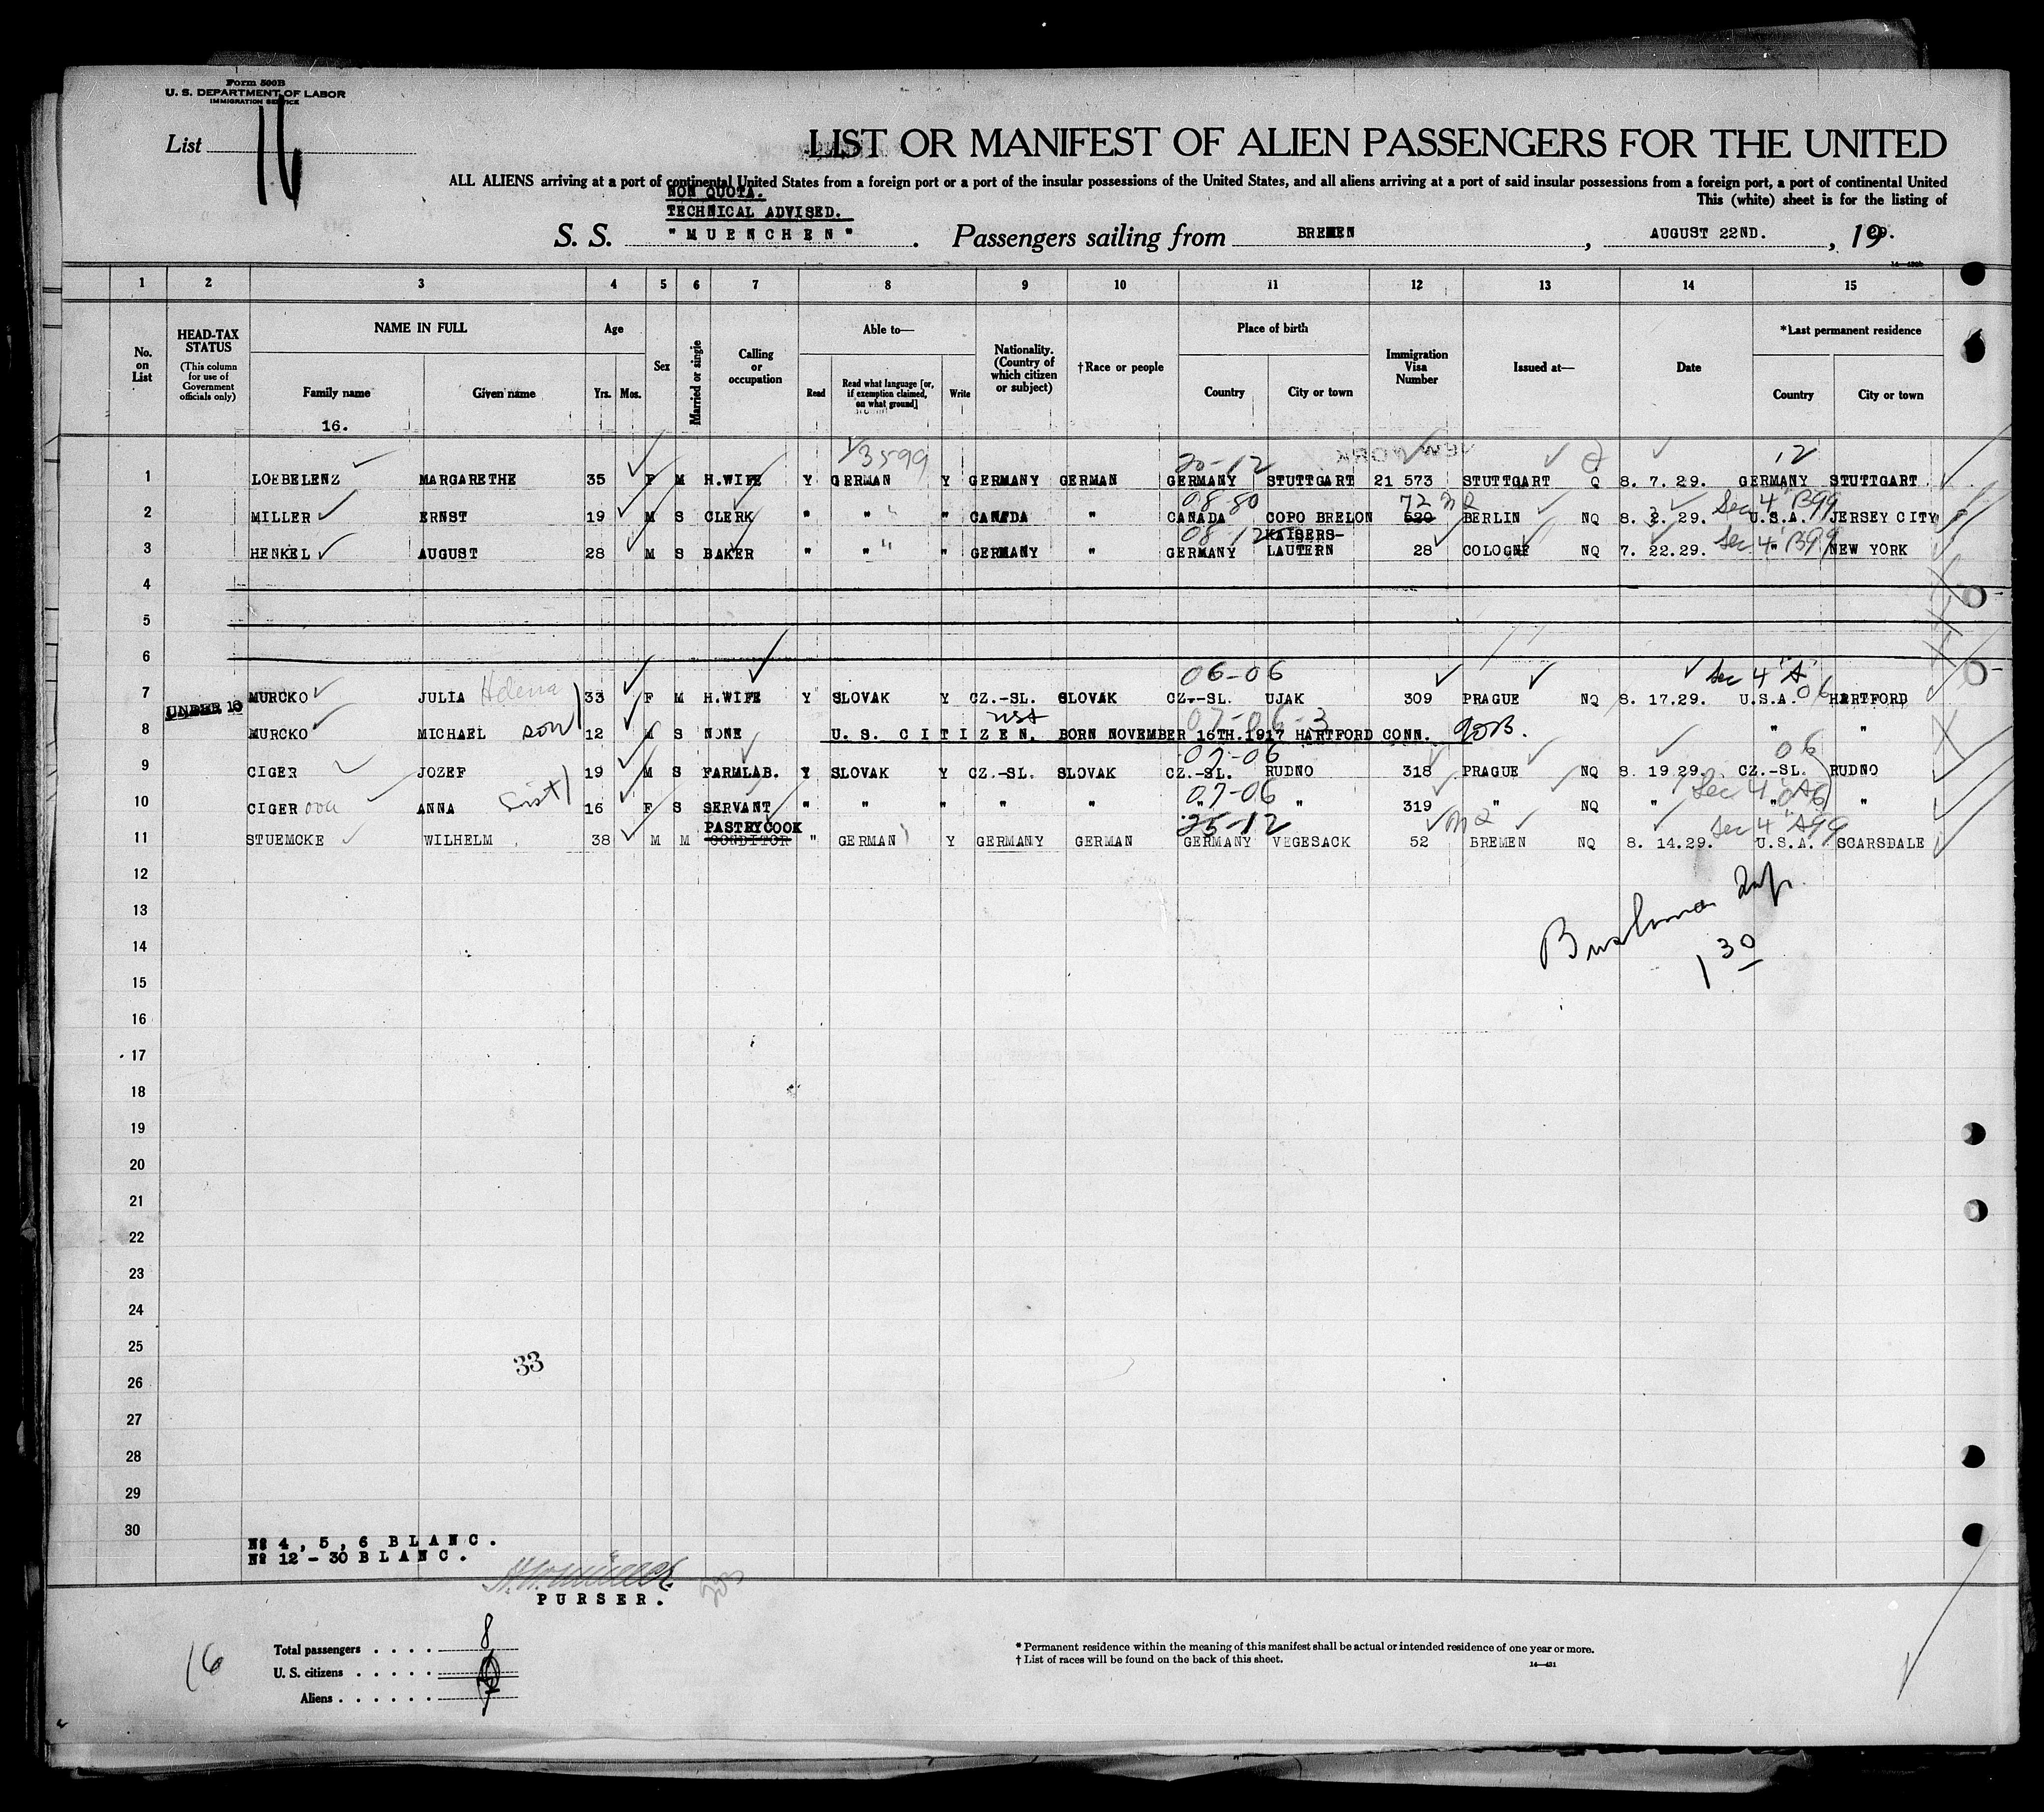 Form 500B
U. S. DEPARTMENT OF LABOR
IMMIGRATION SERVICE
List 16
LIST OR MANIFEST OF ALIEN PASSENGERS FOR THE UNITED
ALL ALIENS arriving at a port of continental United States from a foreign port or a port of the insular possessions of the United States, and all aliens arriving at a port of said insular possessions from a foreign port, a port of continental United
This (white) sheet is for the listing of
NON QUOTA.
TECHNICAL ADVISED.
S. S. "MUENCHEN". Passengers sailing from BREMEN, AUGUST 22ND., 1929.
1 2 3 4 5 6 7 8 9 10 11 12 13 14 15
No. on List
HEAD-TAX STATUS (This column for use of Government officials only)
NAME IN FULL
Family name Given name
16.
Age
Yrs. Mos.
Sex
Married or single
Calling or occupation
Able to—
Read
Read what language [or, if exemption claimed, on what ground]
Write
Nationality. (Country of which citizen or subject)
†Race or people
Place of birth
Country City or town
Immigration Visa Number
Issued at—
Date
*Last permanent residence
Country City or town
NEW YORK
13599 20-12 12
1 LOEBELENZ MARGARETHE 35 F M H.WIFE Y GERMAN Y GERMANY GERMAN GERMANY STUTTGART 21 573 STUTTGART Q 8. 7. 29. GERMANY STUTTGART
08-80 72 Sec 4 B99
2 MILLER ERNST 19 M S CLERK " " " CANADA " CANADA COPO BRELON 520 BERLIN NQ 8. 2. 29. U.S.A. JERSEY CITY
08-12 KAISERS- Sec 4 B99
3 HENKEL AUGUST 28 M S BAKER " " " GERMANY " GERMANY LAUTERN 28 COLOGNE NQ 7. 22.29. " NEW YORK
4
5
6
06-06 Sec 4 "A"
7 MURCKO JULIA Helena 33 F M H.WIFE Y SLOVAK Y CZ.-SL. SLOVAK CZ.-SL. UJAK 309 PRAGUE NQ 8. 17.29. U.S.A. 06 HARTFORD
UNDER 16
USA 07-06-3
8 MURCKO MICHAEL son 12 M S NONE U.S. CITIZEN. BORN NOVEMBER 16TH.1917 HARTFORD CONN. " "
07-06 06
9 CIGER JOZEF 19 M S FARMLAB. Y SLOVAK Y CZ.-SL. SLOVAK CZ.-SL. RUDNO 318 PRAGUE NQ 8. 19 29. CZ.-SL. RUDNO
07-06 Sec 4 A 06
10 CIGER ova ANNA Sist 16 F S SERVANT " " " " " " " 319 " NQ " " "
PASTRYCOOK 25-12 Sec 4 A99
11 STUEMCKE WILHELM 38 M M CONDITOR " GERMAN Y GERMANY GERMAN GERMANY VEGESACK 52 BREMEN NQ 8. 14.29. U.S.A. SCARSDALE
12
13
14
1 30
15
16
17
18
19
20
21
22
23
24
25
33
26
27
28
29
30
No 4, 5, 6 BLANC.
No 12 - 30 BLANC.
PURSER.
16
Total passengers . . . . 8
U. S. citizens . . . . .
Aliens . . . . . .
* Permanent residence within the meaning of this manifest shall be actual or intended residence of one year or more.
† List of races will be found on the back of this sheet.
14—431